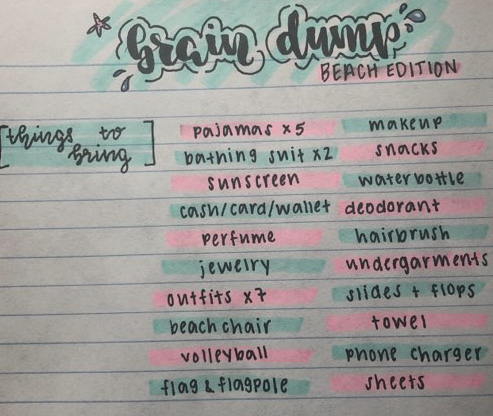 brain dump
BEACH EDITION
[things to bring]
pajamas x5
bathing suit x2
sunscreen
cash/card/wallet
perfume
jewelry
outfits x7
beach chair
volleyball
flag & flagpole
makeup
snacks
waterbottle
deodorant
hairbrush
undergarments
slides + flops
towel
phone charger
sheets